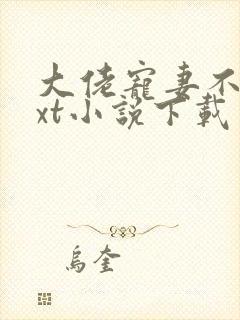 大佬寵妻不
xt小說下載
烏奎